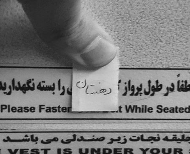 لطفاً در طول پرواز ک را بسته نگهدارید
دهستان
Please Fasten t While Seated
طبقه نجات زیر صندلی می باشد
VEST IS UNDER YOUR